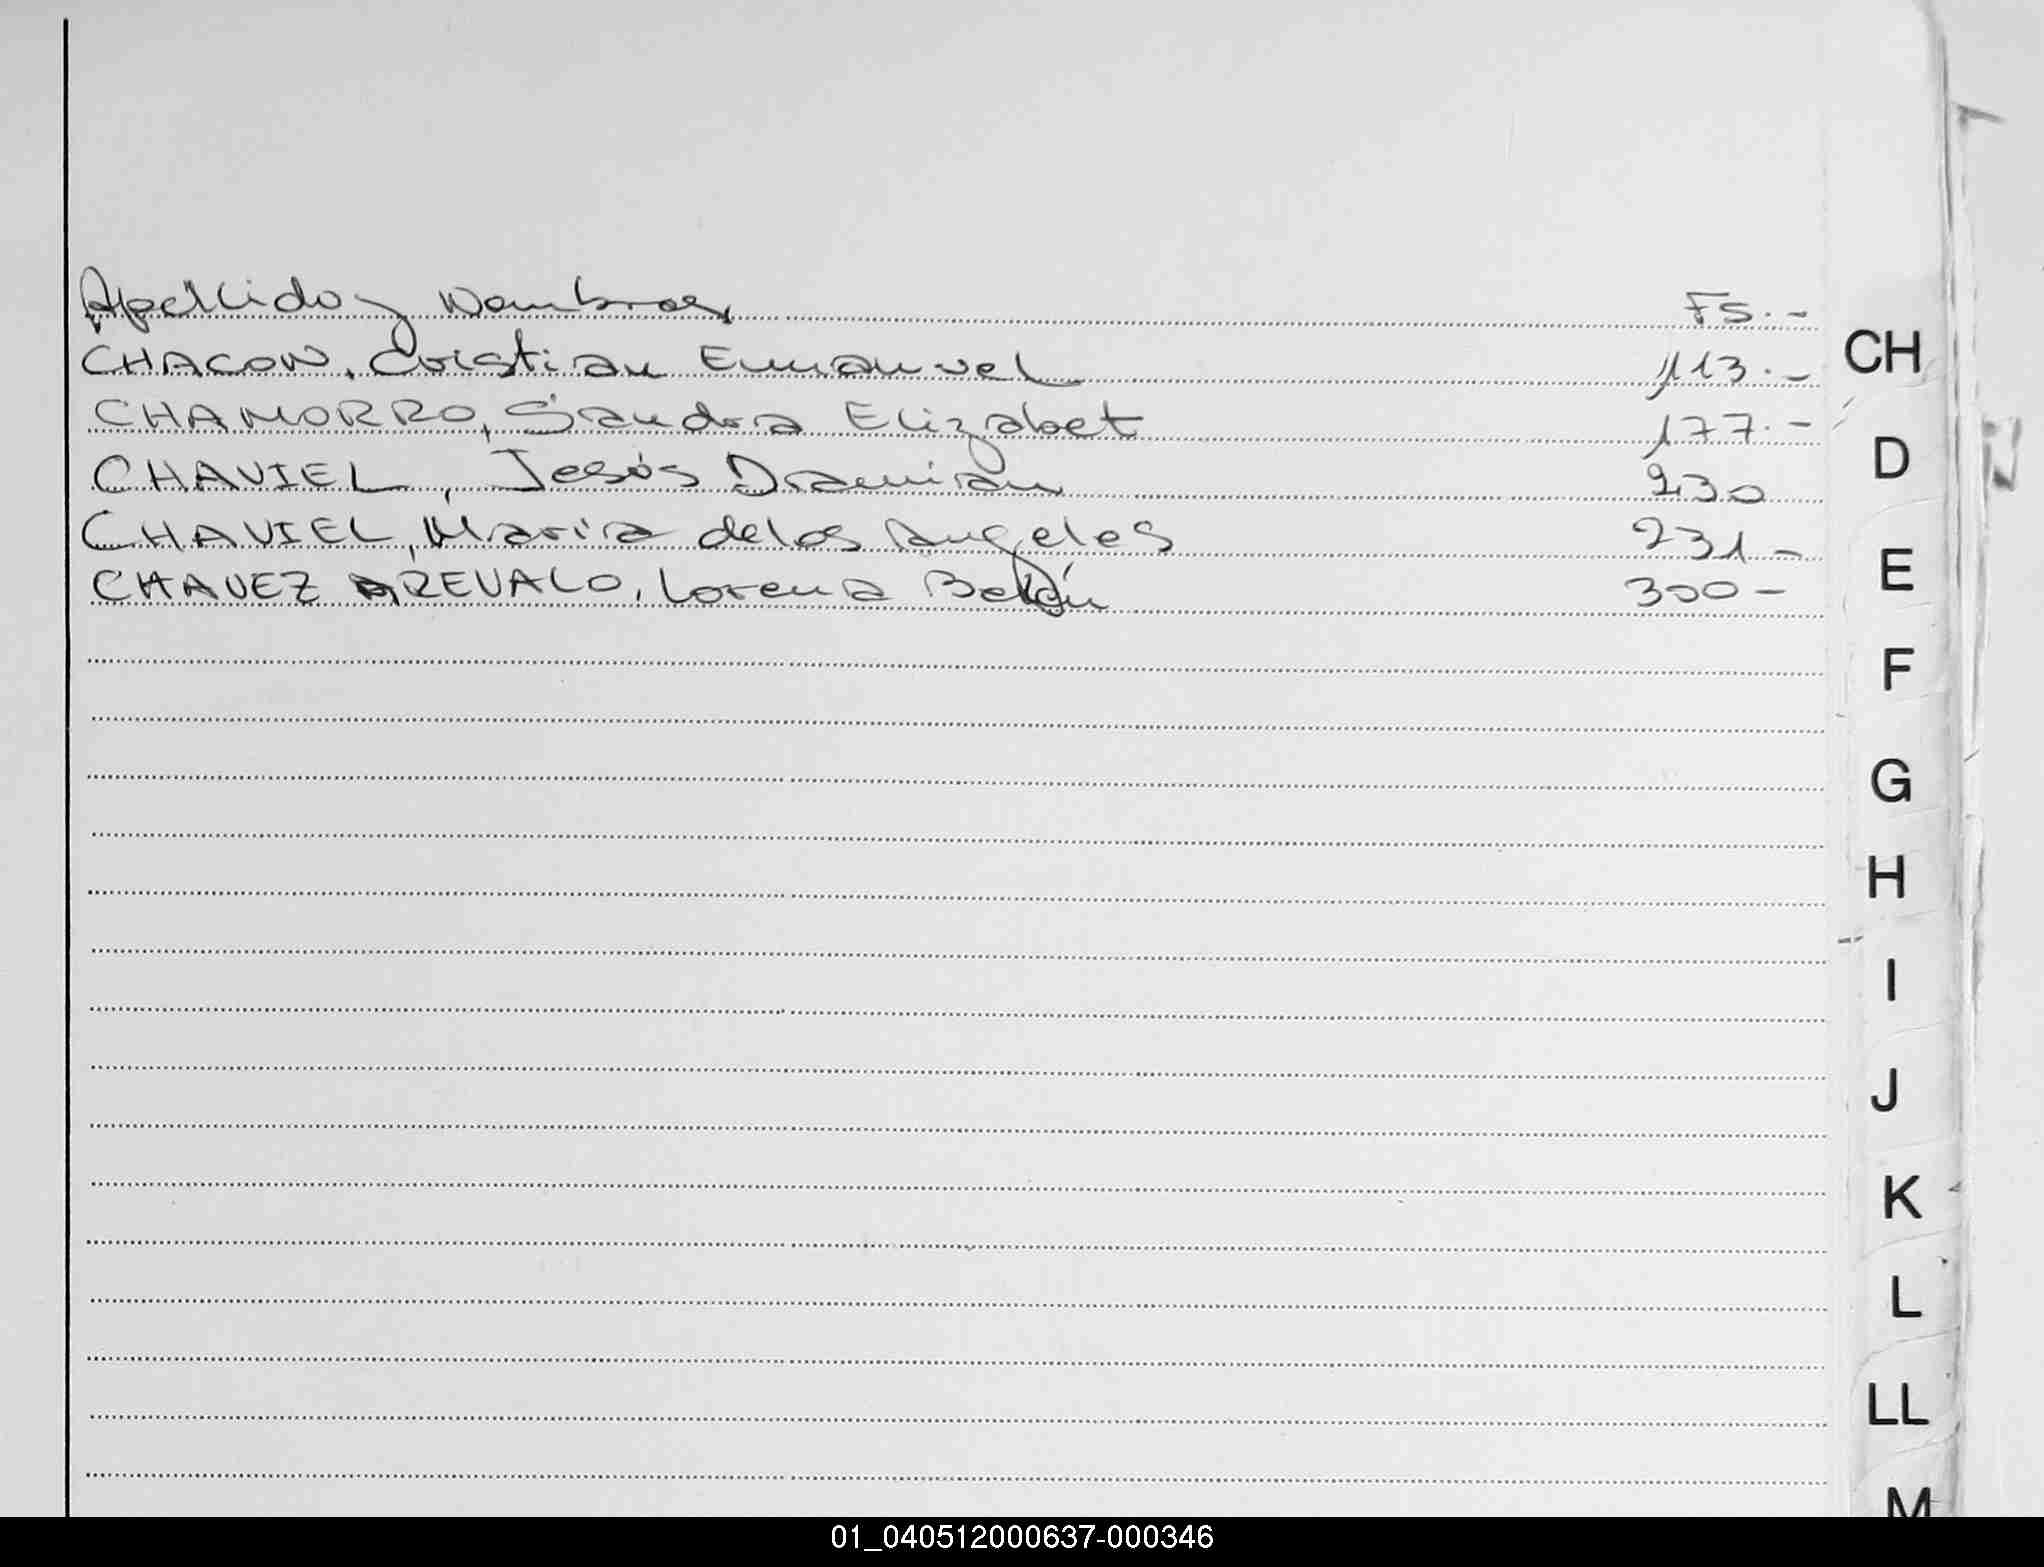 Apellido y Nombres, Fs.-
CHACON, Cristian Emmanuel 113.-
CHAMORRO, Sandra Elizabet 177.-
CHAVIEL, Jesús Damian 230
CHAVIEL, Maria de los Angeles 231-
CHAVEZ AREVALO, Lorena Belén 300-
CH
D
E
F
G
H
I
J
K
L
LL
M
01_040512000637-000346